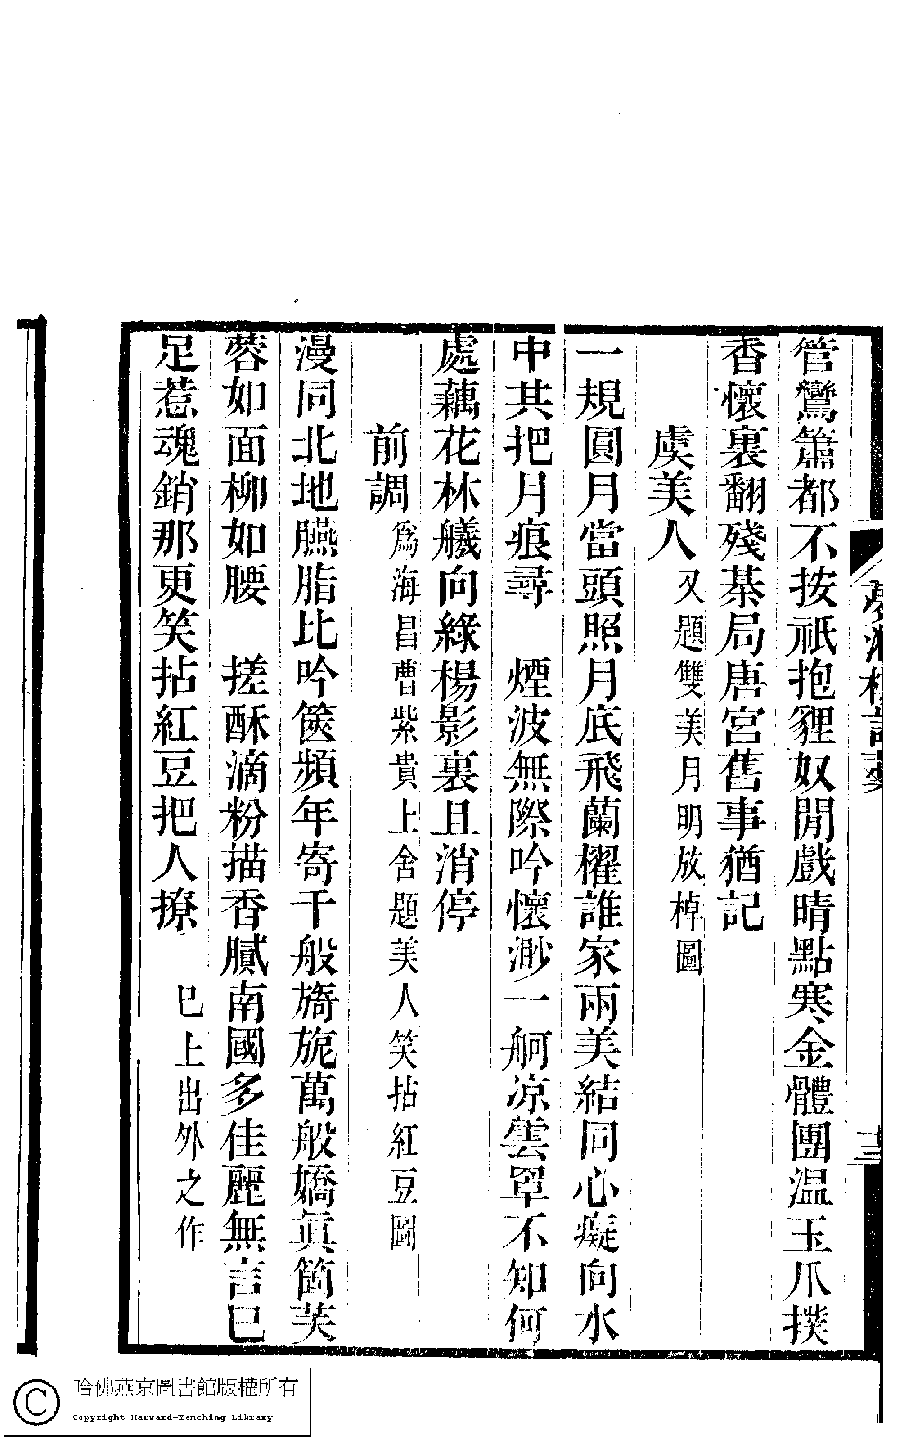 管鸞簫都不按祇抱貍奴閒戲晴點寒金體團温玉爪撲
香懷裏翻殘棊局唐宮舊事猶記
虞美人 又題雙美月明放棹圖
一規圓月當頭照月底飛蘭櫂誰家兩美結同心癡向水
中共把月痕尋　煙波無際吟懷渺一舸凉雲罩不知何
處藕花林艤向綠楊影裏且消停
前調 爲海昌曹紫貴上舍題美人笑拈紅豆圖
漫同北地臙脂比吟篋頻年寄千般旖旎萬般嬌眞箇芙
蓉如面柳如腰　搓酥滴粉描香膩南國多佳麗無言已
足惹魂銷那更笑拈紅豆把人撩 已上出外之作
哈佛燕京圖書館版權所有
Copyright Harvard-Yenching Library